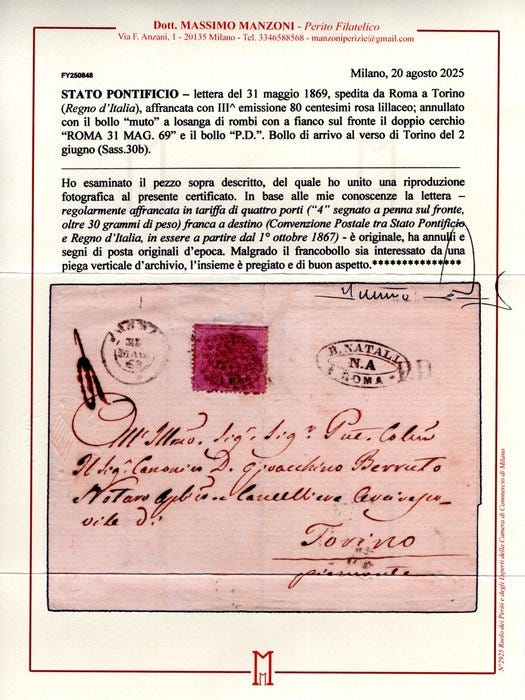 Dott. MASSIMO MANZONI - Perito Filatelico
Via F. Anzani, 1 - 20135 Milano - Tel. 3346588568 - manzoniperizie@gmail.com
FY250848
Milano, 20 agosto 2025
STATO PONTIFICIO – lettera del 31 maggio 1869, spedita da Roma a Torino
(Regno d'Italia), affrancata con III^ emissione 80 centesimi rosa lillaceo; annullato
con il bollo “muto” a losanga di rombi con a fianco sul fronte il doppio cerchio
“ROMA 31 MAG. 69” e il bollo “P.D.”. Bollo di arrivo al verso di Torino del 2
giugno (Sass.30b).
Ho esaminato il pezzo sopra descritto, del quale ho unito una riproduzione
fotografica al presente certificato. In base alle mie conoscenze la lettera –
regolarmente affrancata in tariffa di quattro porti (“4” segnato a penna sul fronte,
oltre 30 grammi di peso) franca a destino (Convenzione Postale tra Stato Pontificio
e Regno d'Italia, in essere a partire dal 1° ottobre 1867) - è originale, ha annulli e
segni di posta originali d'epoca. Malgrado il francobollo sia interessato da una
piega verticale d'archivio, l'insieme è pregiato e di buon aspetto.***************
31
MAG
B. NATALI
N.A
ROMA
PD
All' Illmo. Sigr. Sigr.
Il Sigr Canonico D. Gioacchino Berruto
Notaro
Torino
piemonte
N°2925 Ruolo dei Periti e degli Esperti della Camera di Commercio di Milano
M